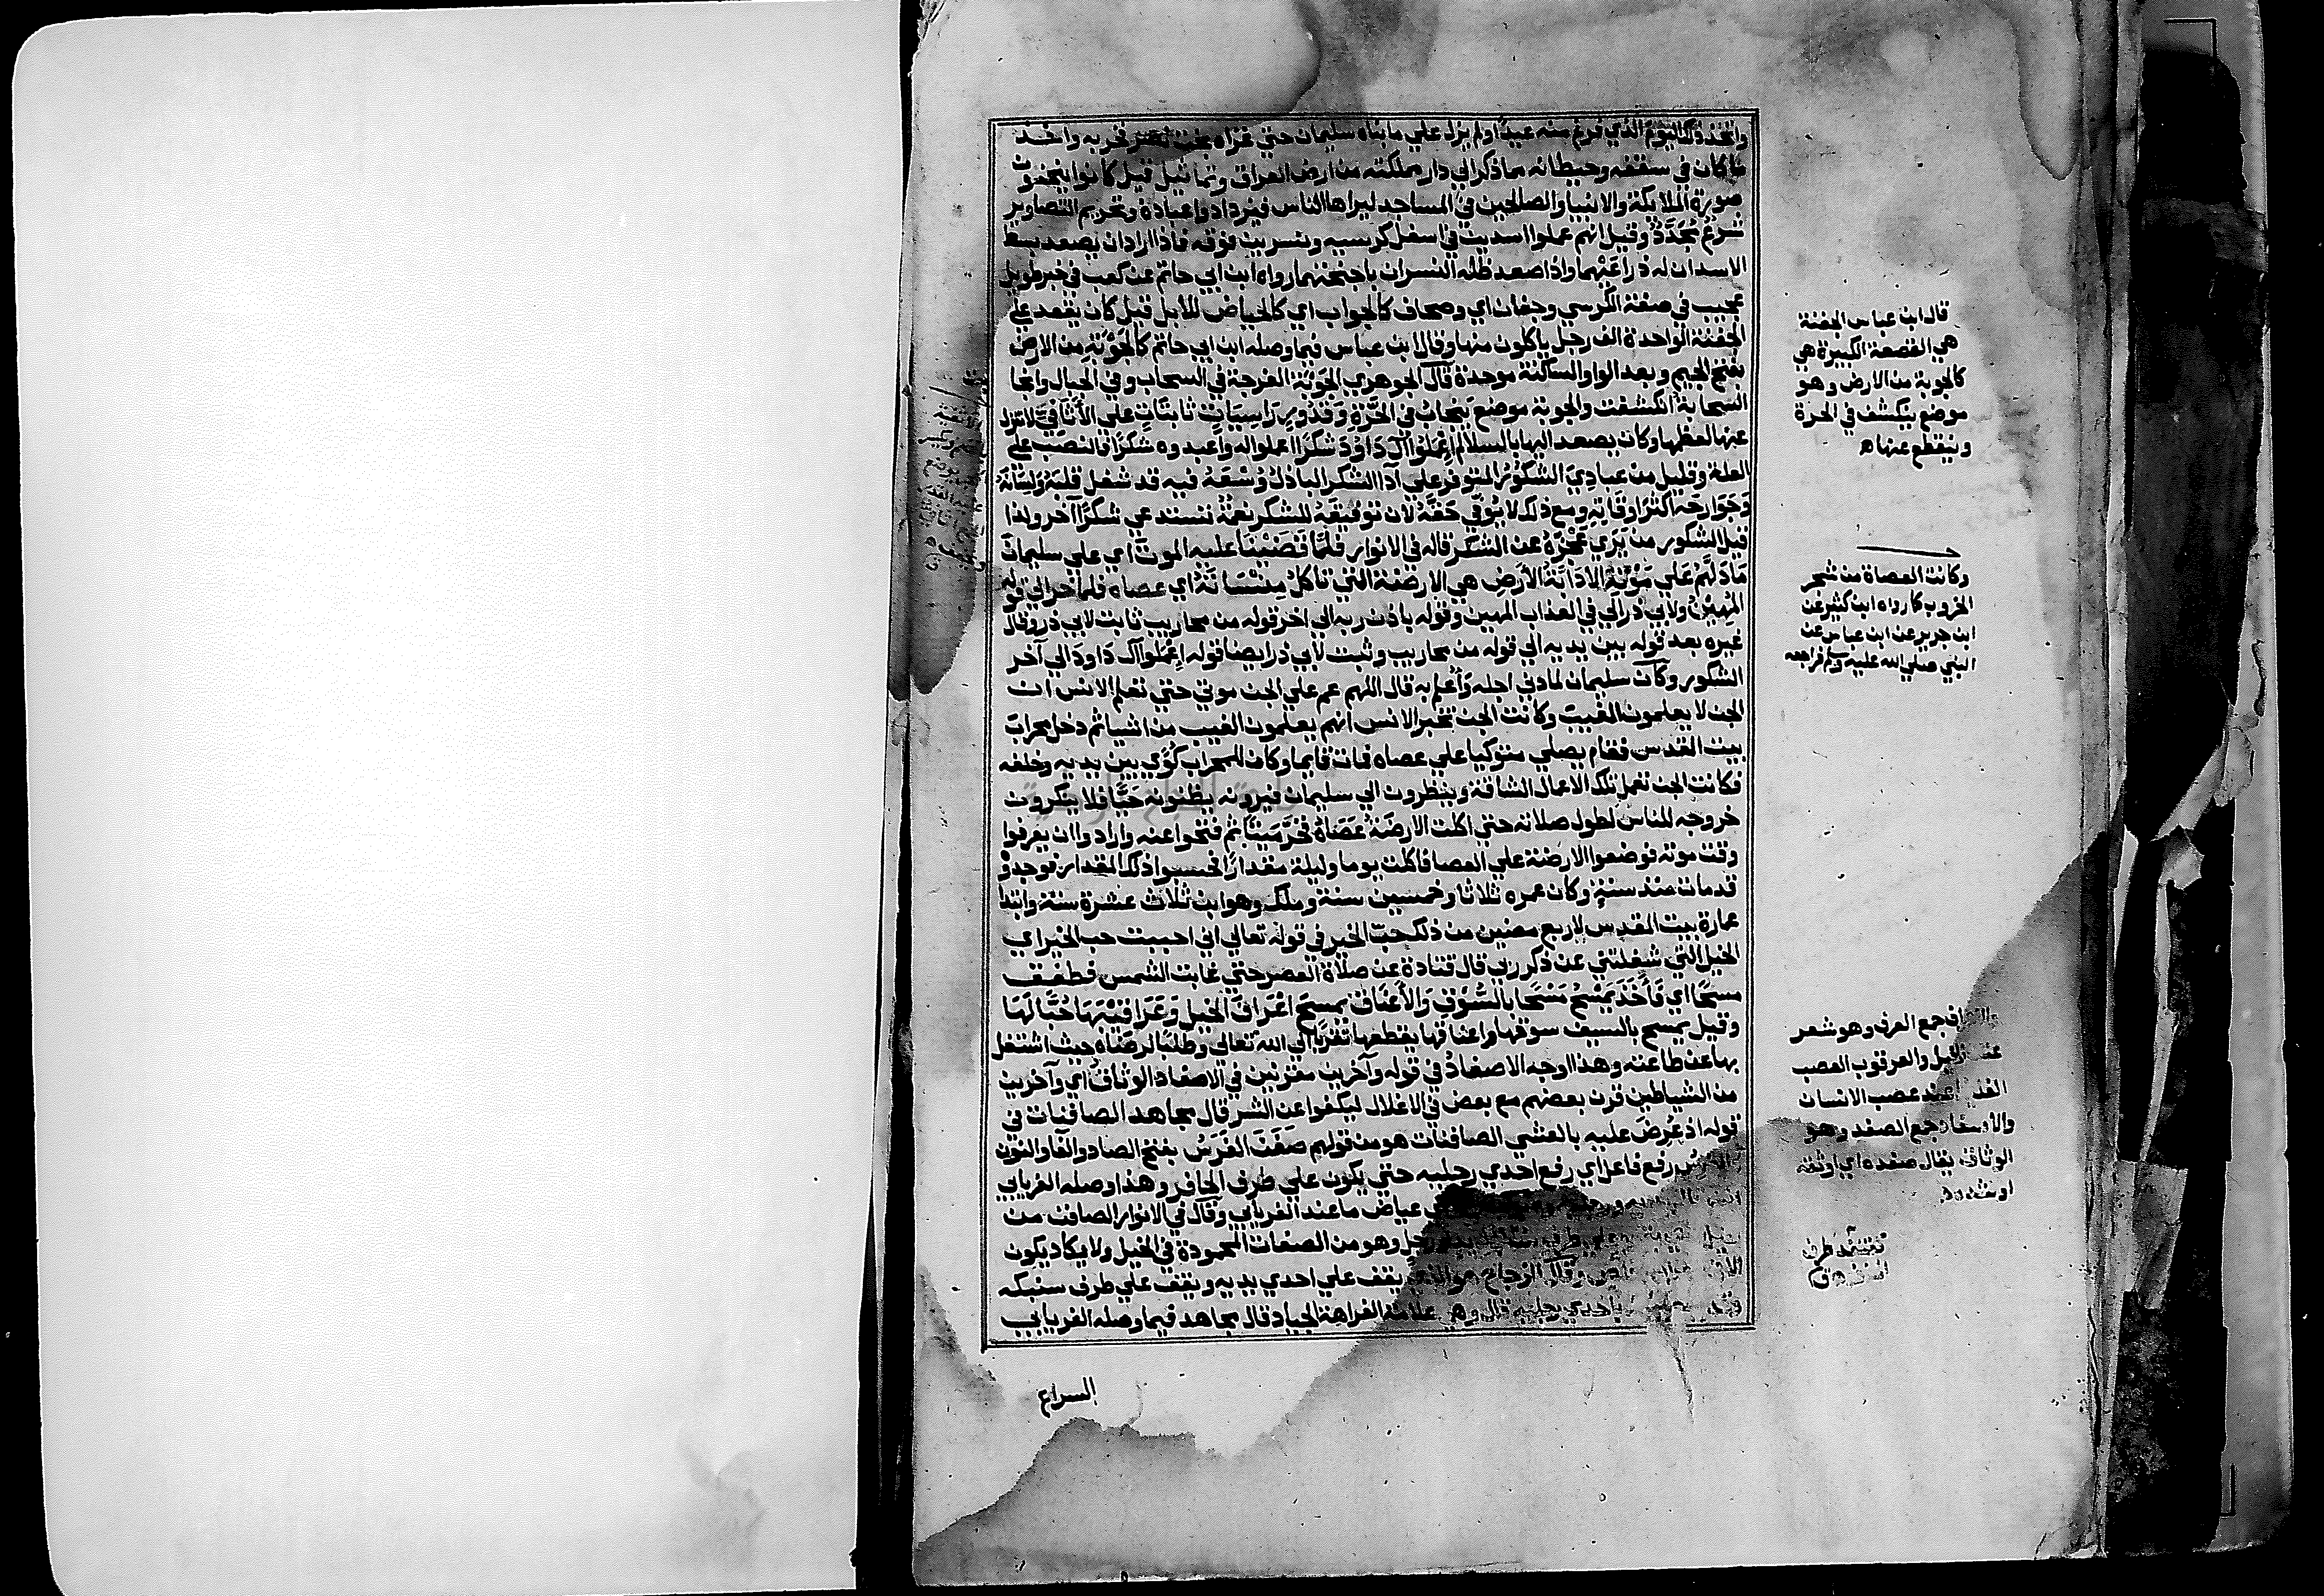 واتخذ ذلك اليوم الذي فرغ منه عيدا ولم يزل علي ما بناه سليمان حتي غزاه بخت نصر فخربه واخذ
ما كان في سقفه وحيطانه مما ذكر الي دار مملكته من ارض العراق وتماثيل قيل كانوا ينحتون
صورة الملايكة والانبيا والصالحين في المساجد ليراها الناس فيزدادوا عبادة وتحريم التصاوير
شرع مجدد وقيل انهم عملوا اسدين في اسفل كرسيه ونسرين فوقه فاذا اراد ان يصعد بسط
الاسدان له ذراعيهما واذا صعد ظله النسران باجنحتهما رواه ابن ابي حاتم عن كعب في خبر طويل
عجيب في صفة الكرسي وجفان اي وصحاف كالجواب اي كالحياض للابل قيل كان يقعد علي
الجفنة الواحدة الف رجل ياكلون منها وقال ابن عباس فيما وصله ابن ابي حاتم كالجَوْبَةِ من الارض
بفتح الجيم وبعد الواو الساكنة موحدة قال الجوهري الجَوْبَة الفرجة في السحاب وفي الجبال وانجا
السحابة انكشفت والجوبة موضع ينجاب في الحَرَّةِ وَقُدُورٍ رَاسِيَاتٍ ثابتات علي الأثافي لا تنزل
عنها لعظمها وكان يصعد اليها بالسلالم اعْمَلُوا آلَ دَاوُدَ شُكْرًا اعملوا له واعبدوه شكرا فالنصب علي
العلة وقليل من عبادي الشكور المتوفر علي آدا الشكر الباذل وُسْعَهُ فيه قد شغل قلبَهُ ولِسَانَهُ
وَجَوَارِحَه اكثر اوقاتِهِ ومع ذلك لا يُوَفِّي حَقَّهُ لان توفيقَهُ للشكر نعمةٌ تستدعي شكرًا آخر ولذا
قيل الشكور من يَرَي عَجْزَهُ عن الشكر قاله في الانوار فلمَّا قَضَيْنَا عليه الموتَ اي علي سليمان
مَا دَلَّهُمْ عَلَي مَوْتِهِ إلا دَابَّةُ الأَرْضِ هي الارضة التي تَأْكُلُ مِنْسَأَتَهُ اي عصاه فلما خر الي قوله
المُهِينُ ولابي ذر الي في العذاب المهين وقوله باذن ربه الي اخر قوله من محاريب ثابت لابي ذر وقال
غيره بعد قوله بين يديه الي قوله من محاريب وثبت لابي ذر ايضا قوله اعملوا آل داود الي آخر
الشكور وكان سليمان لما دني اجله وَأُعْلِم به قال اللهم عم علي الجن موتي حتي تعلم الانس ان
الجن لا يعلمون الغيب وكانت الجن تخبر الانس انهم يعلمون الغيب من اشيا ثم دخل محراب
بيت المقدس فقام يصلي متوكيا علي عصاه فمات قايما وكان للمحراب كُوًى بين يديه وخلفه
فكانت الجن تعمل تلك الاعمال الشاقة وينظرون الي سليمان فيرونه يظنونه حَيًّا فلا ينكرون
خروجه للناس لطول صلاته حتي اكلت الارضَةُ عَصَاهُ فخَرَّ مَيتًا ثم فتحوا عنه وارادوا ان يعرفوا
وقت موته فوضعوا الارضة علي العصا فاكلت يوما وليلة مقدارًا فحسبوا ذلك المقدار فوجدوه
قد مات منذ سنةٍ وكان عمره ثلاثا وخمسين سنة وملك وهو ابن ثلاث عشرة سنة وابتدا
عمارة بيت المقدس لاربع مضين من ذلك حب الخير في قوله تعالي اني احببت حب الخير اي
الخيل التي شغلتني عن ذكر ربي قال قتادة عن صلاة العصر حتي غابت الشمس فطفق
مسحًا اي فَأَخَذَ يَمْسَحُ مَسْحًا بالسُّوْقِ وَالأَعْنَاقِ يمسح اعْرَافَ الخيل وَعَرَاقِيْبَهَا حُبًّا لَهَا
وقيل يمسح بالسيف سوقها واعناقها يقطعها تقربًا الي الله تعالي وطلبًا لرضاه حيث اشتغل
بها عن طاعته وهذا اوجه الاصفادُ في قوله وآخرين مقرنين في الاصفاد الوثاقُ اي وآخرين
من الشياطين قرن بعضهم مع بعض في الاغلال ليكفوا عن الشر قال مجاهد الصافنات في
قوله اذ عُرِضَ عليه بالعشي الصافنات هو من قولهم صَفَنَ الفَرَسُ بفتح الصاد والفا والنون
رفع فاعل اي رفع احدي رجليه حتي يكون علي طرف الحافر وهذا وصله الفريابي
عياض ما عند الفريابي وقال في الانوار الصافن من
رجل وهو من الصفات المحمودة في الخيل ولا يكاد يكون
وقال الزجاج هو الذي يقف علي احدي يديه ويقف علي طرف سنبكه
باحدي رجليه قال وهي علامة الفراهة الجياد قال مجاهد فيما وصله الفريابي
السراع
قال ابن عباس الجفنة
هي القصعة الكبيرة هي
كالجوبة من الارض وهو
موضع ينكشف في الحرة
وينقطع عنها ه
وكانت العصاة من شجر
الخروب كما رواه ابن كثير عن
ابن جرير عن ابن عباس عن
النبي صلي الله عليه وسلم فراجعه
جمع العرف وهو شعر
والعرقوب العصب
عند عصب الانسان
والاصفاد جمع الصفد وهو
الوثاق يقال صفده اي اوثقه
او شده